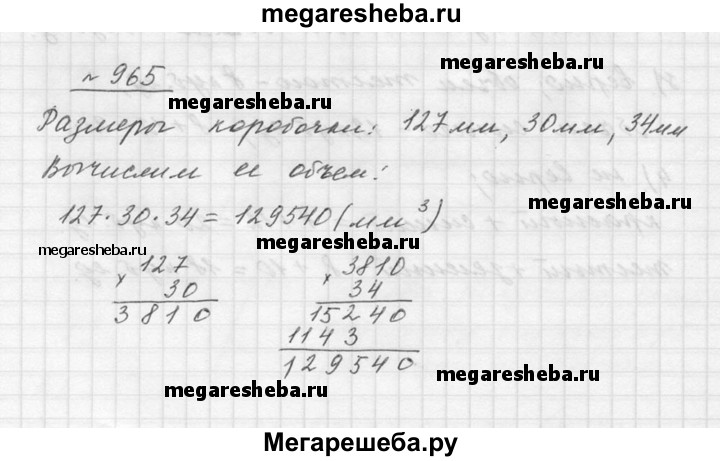 megaresheba.ru
№ 965
megaresheba.ru
megaresheba.ru
Размеры коробочки: 127мм, 30мм, 34мм
Вычислим ее объем:
megaresheba.ru
127·30·34 = 129540 (мм³)
megaresheba.ru
megaresheba.ru
× 127
30
3810
× 3810
34
15240
1143
129540
megaresheba.ru
megaresheba.ru
Мегарешеба.ру